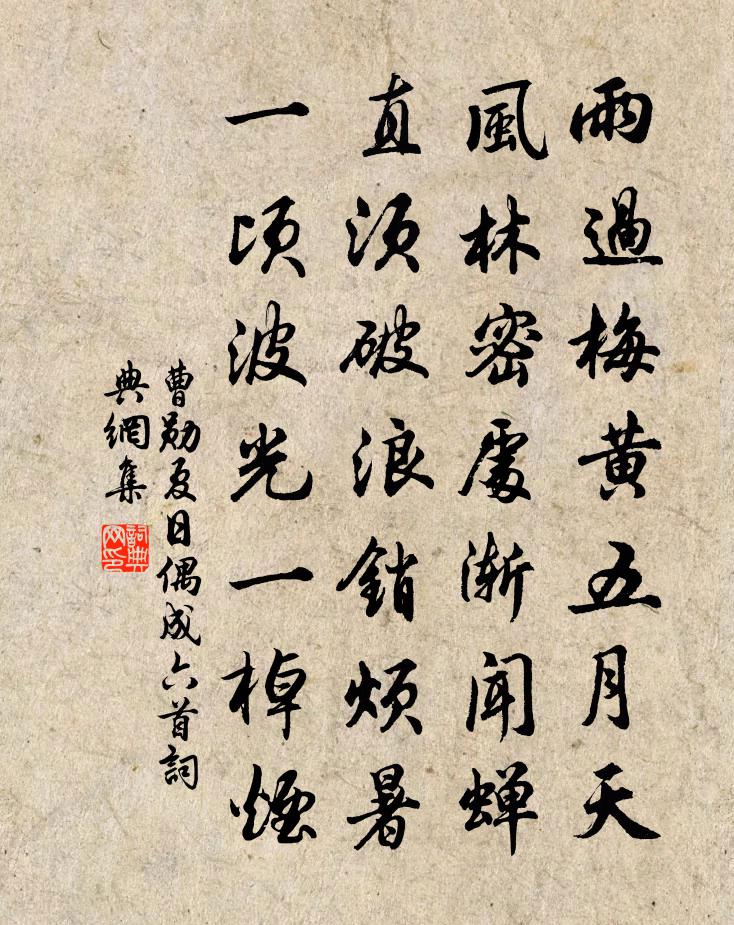 雨過梅黄五月天
風林密處漸聞蝉
直須破浪銷煩暑
一頃波光一棹煙
曹勛夏日偶成六首詞
典網集
詞典网印